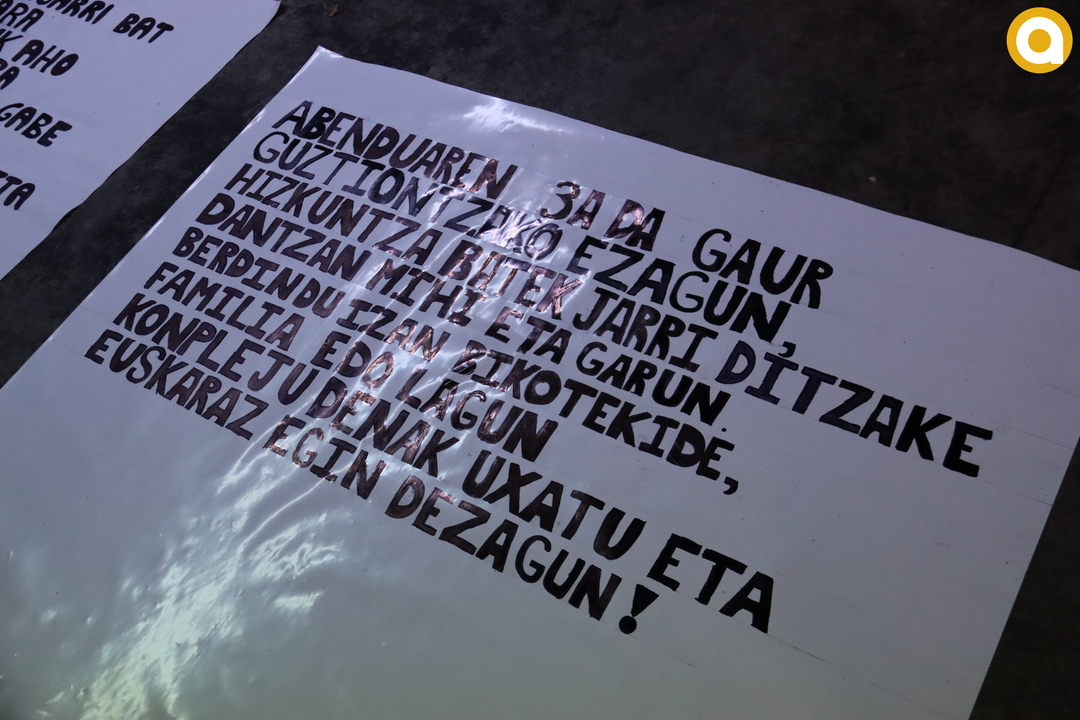 JARRI BAT
ARA
K AHO
PA
GABE
ETA
ABENDUAREN 3A DA GAUR
GUZTIONTZAKO EZAGUN,
HIZKUNTZA BATEK JARRI DITZAKE
DANTZAN MIHI ETA GARUN.
BERDIN DU IZAN BIKOTEKIDE,
FAMILIA EDO LAGUN
KONPLEJU DENAK UXATU ETA
EUSKARAZ EGIN DEZAGUN!
a